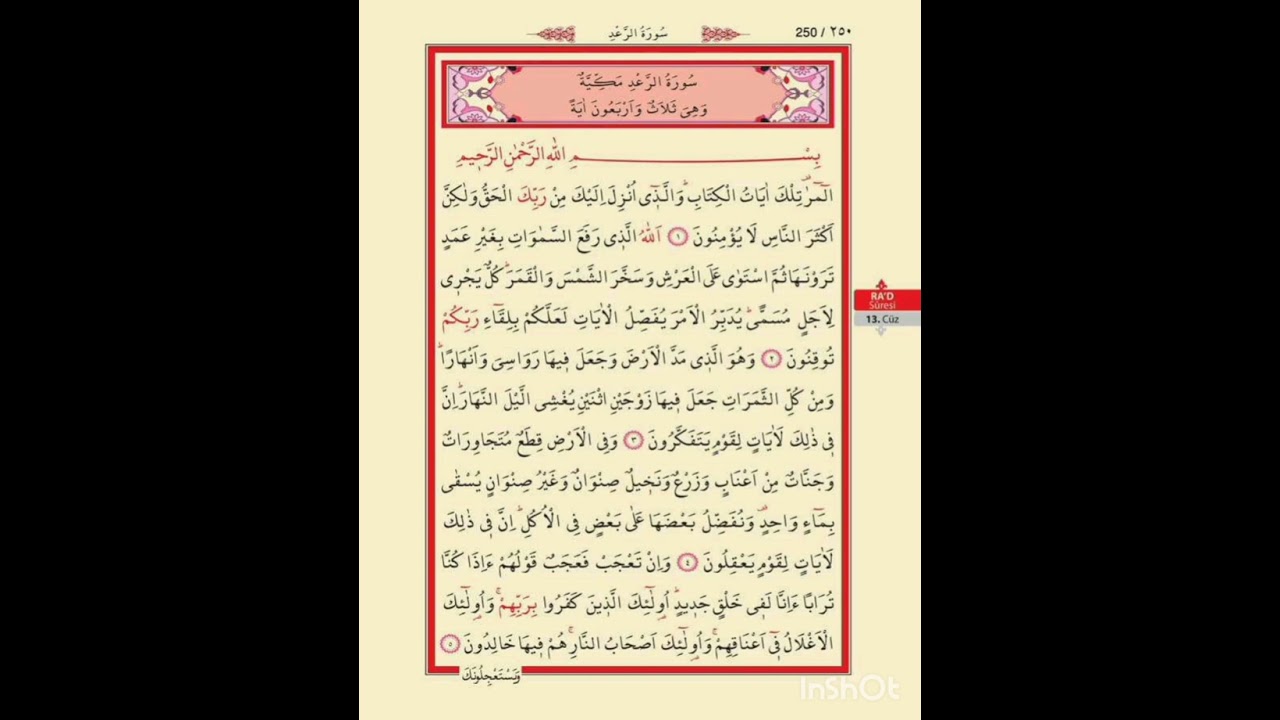 ٢٥٠ / 250
سُورَةُ الرَّعْدِ
سُورَةُ الرَّعْدِ مَكِّيَّةٌ
وَهِىَ ثَلَاثٌ وَاَرْبَعُونَ اٰيَةً
بِسْمِ اللّٰهِ الرَّحْمٰنِ الرَّحِيمِ
الٓمٓرٰ۠ تِلْكَ اٰيَاتُ الْكِتَابِۜ وَالَّذ۪ٓى اُنْزِلَ اِلَيْكَ مِنْ رَبِّكَ الْحَقُّ وَلٰكِنَّ
اَكْثَرَ النَّاسِ لَا يُؤْمِنُونَ ﴿١﴾ اَللّٰهُ الَّذ۪ى رَفَعَ السَّمٰوَاتِ بِغَيْرِ عَمَدٍ
تَرَوْنَهَا ثُمَّ اسْتَوٰى عَلَى الْعَرْشِ وَسَخَّرَ الشَّمْسَ وَالْقَمَرَۜ كُلٌّ يَجْر۪ى
لِاَجَلٍ مُسَمًّىۜ يُدَبِّرُ الْاَمْرَ يُفَصِّلُ الْاٰيَاتِ لَعَلَّكُمْ بِلِقَٓاءِ رَبِّكُمْ
تُوقِنُونَ ﴿٢﴾ وَهُوَ الَّذ۪ى مَدَّ الْاَرْضَ وَجَعَلَ ف۪يهَا رَوَاسِىَ وَاَنْهَارًاۜ
وَمِنْ كُلِّ الثَّمَرَاتِ جَعَلَ ف۪يهَا زَوْجَيْنِ اثْنَيْنِ يُغْشِى الَّيْلَ النَّهَارَۜ اِنَّ
ف۪ى ذٰلِكَ لَاٰيَاتٍ لِقَوْمٍ يَتَفَكَّرُونَ ﴿٣﴾ وَفِى الْاَرْضِ قِطَعٌ مُتَجَاوِرَاتٌ
وَجَنَّاتٌ مِنْ اَعْنَابٍ وَزَرْعٌ وَنَخ۪يلٌ صِنْوَانٌ وَغَيْرُ صِنْوَانٍ يُسْقٰى
بِمَٓاءٍ وَاحِدٍ۠ وَنُفَضِّلُ بَعْضَهَا عَلٰى بَعْضٍ فِى الْاُكُلِۜ اِنَّ ف۪ى ذٰلِكَ
لَاٰيَاتٍ لِقَوْمٍ يَعْقِلُونَ ﴿٤﴾ وَاِنْ تَعْجَبْ فَعَجَبٌ قَوْلُهُمْ ءَاِذَا كُنَّا
تُرَابًا ءَاِنَّا لَف۪ى خَلْقٍ جَد۪يدٍۜ اُو۬لٰٓئِكَ الَّذ۪ينَ كَفَرُوا بِرَبِّهِمْۚ وَاُو۬لٰٓئِكَ
الْاَغْلَالُ ف۪ٓى اَعْنَاقِهِمْۚ وَاُو۬لٰٓئِكَ اَصْحَابُ النَّارِۚ هُمْ ف۪يهَا خَالِدُونَ ﴿٥﴾
وَيَسْتَعْجِلُونَكَ
RA'D
Sûresi
13. Cüz
InShOt